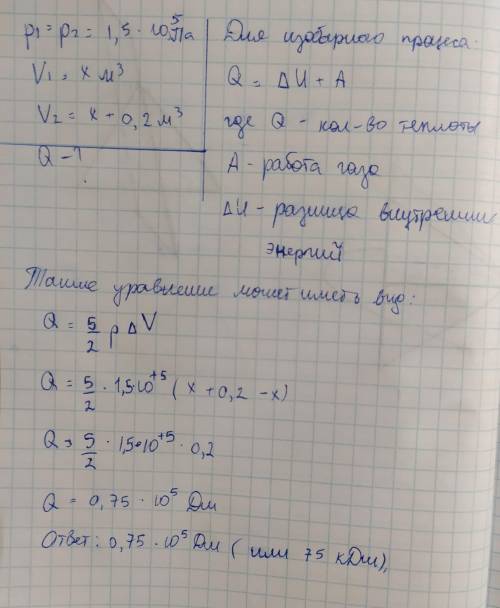 p₁ = p₂ = 1,5 · 10⁵ Па
V₁ = x м³
V₂ = x + 0,2 м³
Q - ?
Для изобарного процеса:
Q = ΔU + A
где Q - кол-во теплоты
A - работа газа
ΔU - разница внутренних
энергий
Также уравнение может иметь вид:
Q = 5/2 p Δ V
Q = 5/2 · 1,5·10⁺⁵ ( x + 0,2 - x)
Q = 5/2 · 1,5·10⁺⁵ · 0,2
Q = 0,75 · 10⁵ Дж
Ответ: 0,75 · 10⁵ Дж ( или 75 кДж),